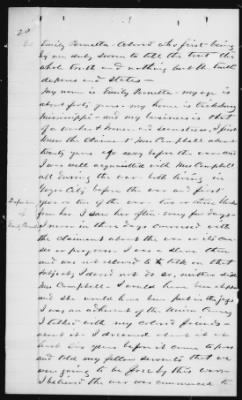 20
Emily Pernella Colored who first being
by me duly sworn to tell the truth the
whole truth and nothing but the truth
deposes and states —
My name is Emily Pernella — my age is
about forty years — my home is Vicksburg
Mississippi — and my business is that
of a washer & ironer and seamstress. I first
knew the claimant Mrs Campbell about
twenty years before the war and
I was well acquainted with Mrs Campbell
all during the war both living in
Yazoo City before the war and first
year or two of the war
from her I saw her often every few days —
I never in those days conversed with
the claimant about the war or its Causes
or progress. I was a slave then
and was not allowed to talk on that
subject, I dared not do so, neither did
Mrs Campbell — I would have been
and she would have been put in the jail
I was an adherent of the Union Cause,
I talked with my colored friends —
about it I dreamed about it
years before it came to pass
and told my fellow servants that we
were going to be free by this war
I believed the war was commenced to
Deposition
of
Emily Pernella